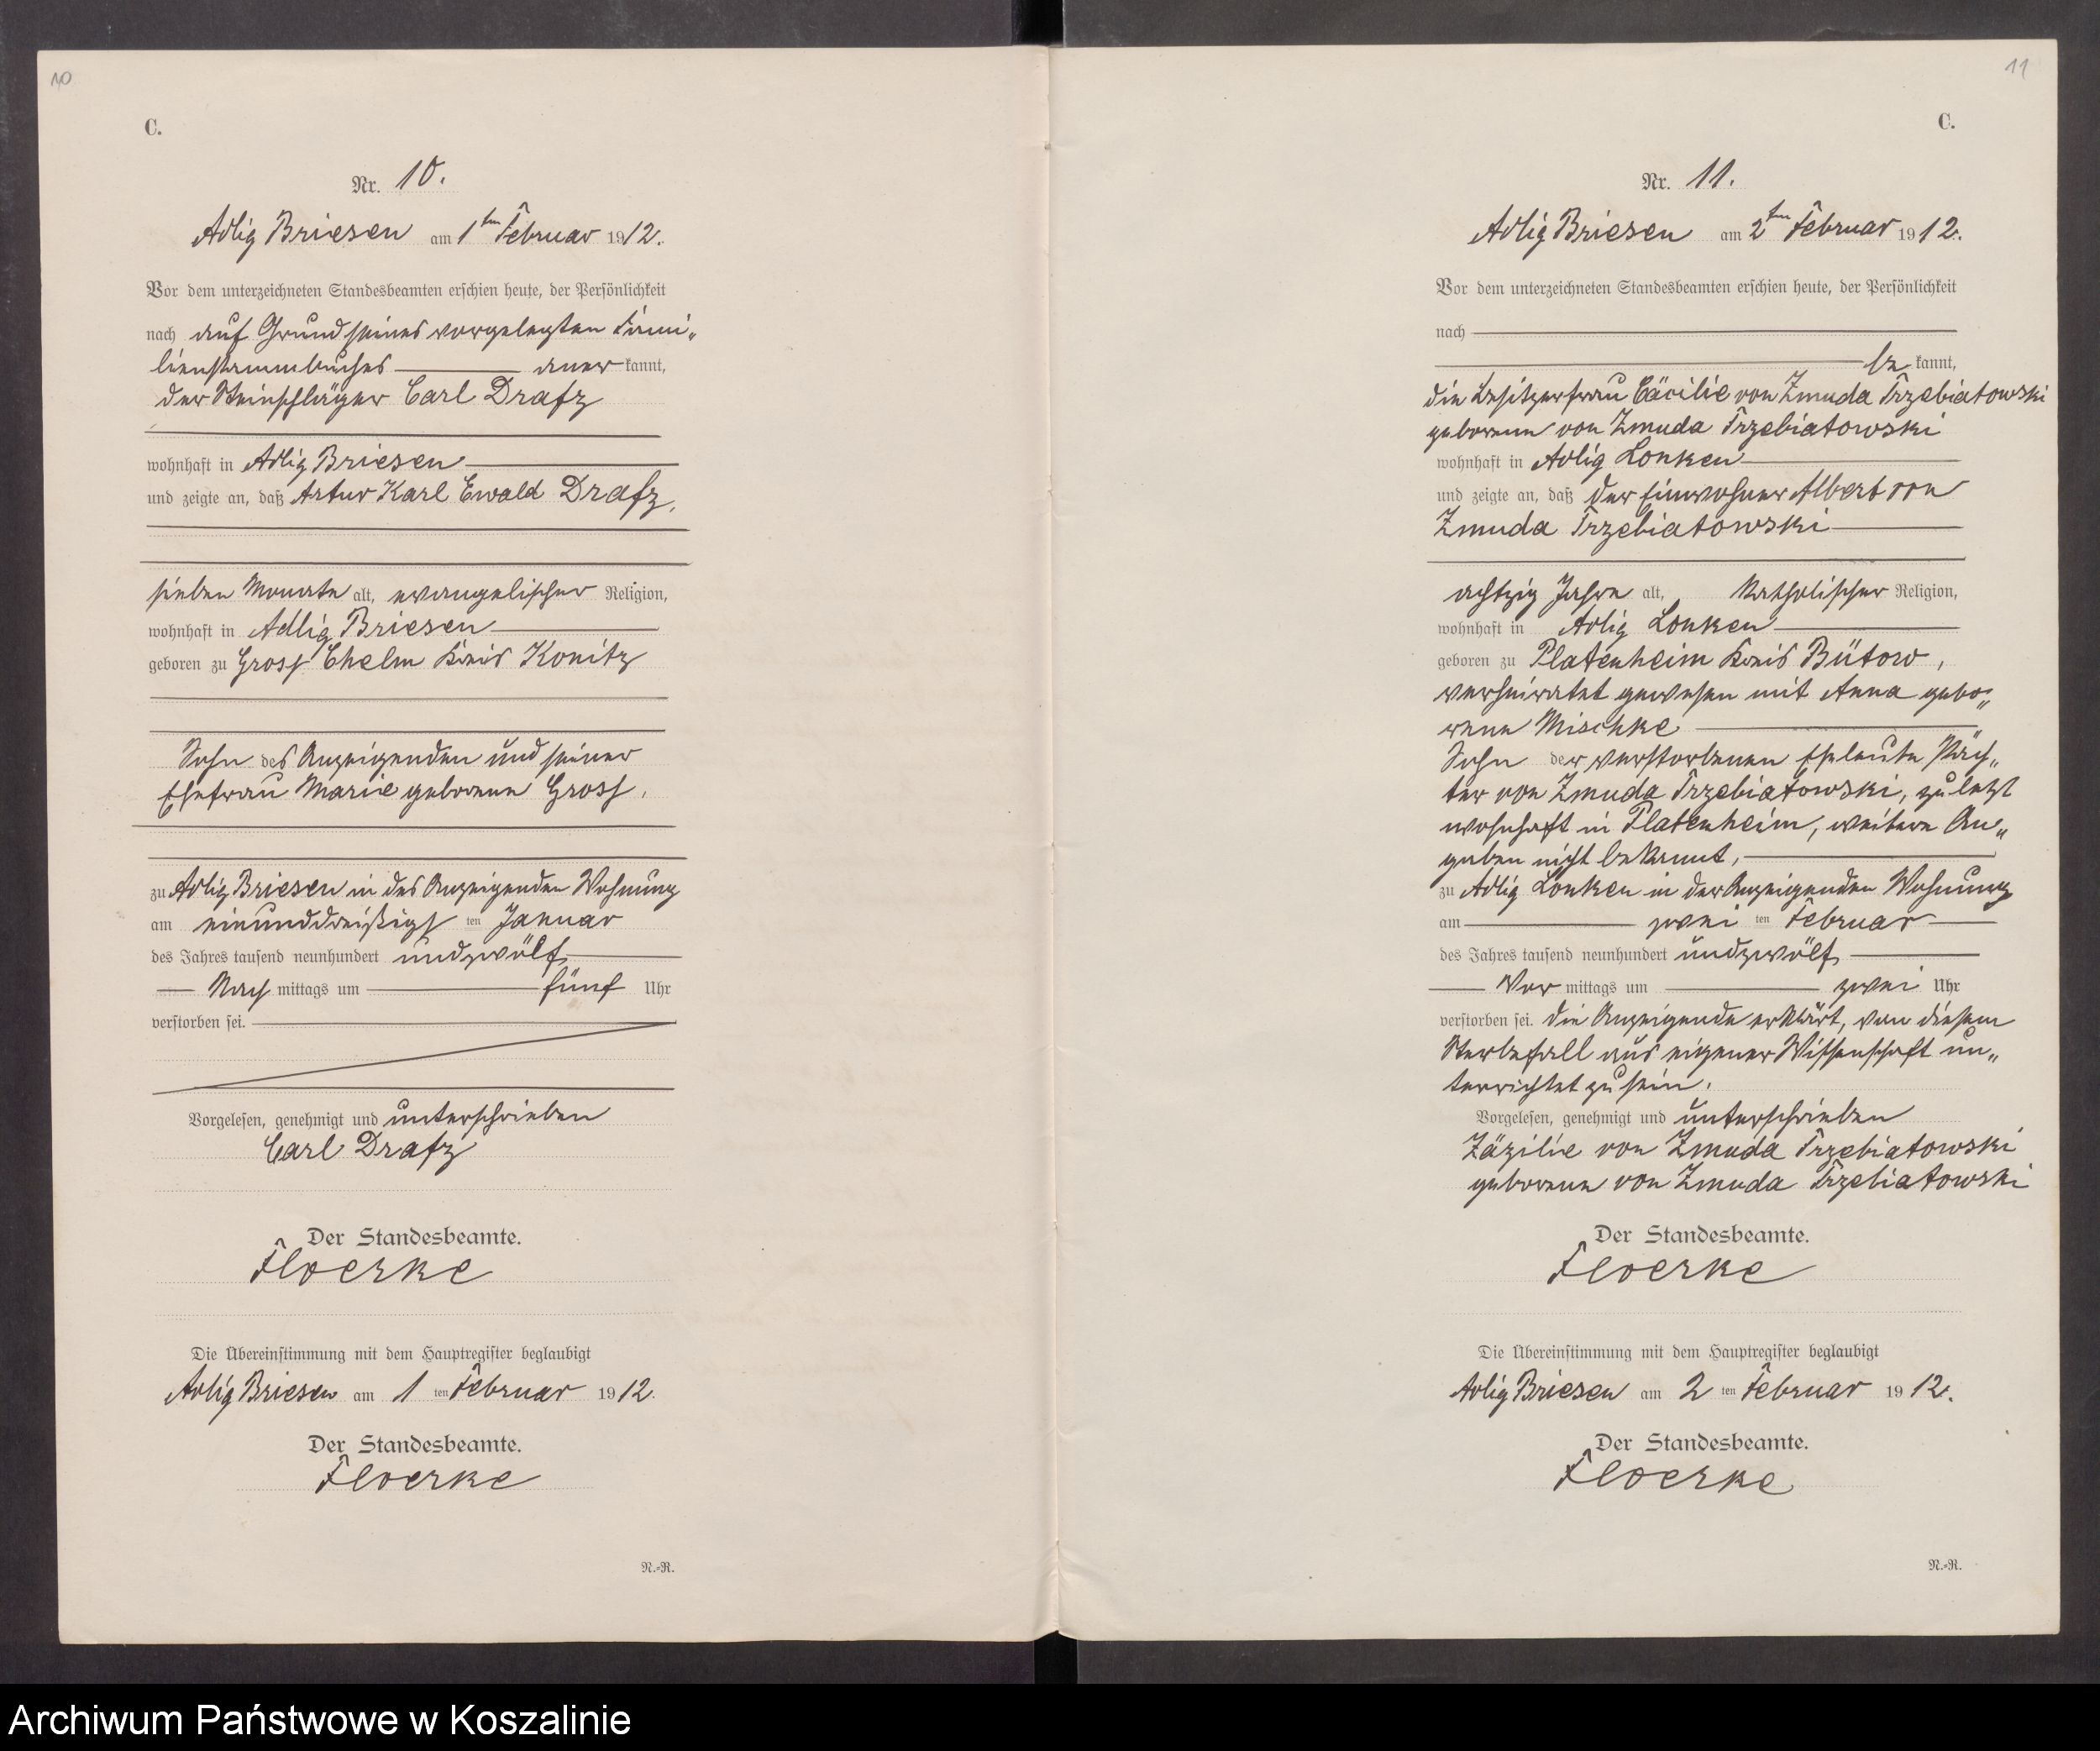 10
C.
Nr. 10.
Adlig Briesen am 1ten Februar 1912.
Vor dem unterzeichneten Standesbeamten erschien heute, der Persönlichkeit
nach auf Grund seines vorgelegten Fami„
lienstammbuches anerkannt,
der Steinschläger Carl Drafz
wohnhaft in Adlig Briesen
und zeigte an, daß Artur Karl Ewald Drafz,
sieben Monate alt, evangelischer Religion,
wohnhaft in Adlig Briesen
geboren zu Gross Chelm Kreis Konitz
Sohn des Anzeigenden und seiner
Ehefrau Marie geborene Gross,
zu Adlig Briesen in des Anzeigenden Wohnung
am einunddreißigsten Januar
des Jahres tausend neunhundert undzwölf
Nachmittags um fünf Uhr
verstorben sei.
Vorgelesen, genehmigt und unterschrieben
Carl Drafz
Der Standesbeamte.
Floerke
Die Übereinstimmung mit dem Hauptregister beglaubigt
Adlig Briesen am 1ten Februar 1912.
Der Standesbeamte.
Floerke
N.=R.
11
C.
Nr. 11.
Adlig Briesen am 2ten Februar 1912.
Vor dem unterzeichneten Standesbeamten erschien heute, der Persönlichkeit
nach
bekannt,
die Besitzerfrau Cäcilie von Zmuda Trzebiatowski
geborene von Zmuda Trzebiatowski
wohnhaft in Adlig Lonken
und zeigte an, daß der Einwohner Albert von
Zmuda Trzebiatowski
achtzig Jahre alt, katholischer Religion,
wohnhaft in Adlig Lonken
geboren zu Platenheim Kreis Bütow,
verheiratet gewesen mit Anna gebo„
rene Mischke
Sohn der verstorbenen Eheleute Päch„
ter von Zmuda Trzebiatowski, zuletzt
wohnhaft in Platenheim, weitere An„
gaben nicht bekannt,
zu Adlig Lonken in der Anzeigenden Wohnung
am zweiten Februar
des Jahres tausend neunhundert undzwölf
Vormittags um zwei Uhr
verstorben sei. Die Anzeigende erklärt, von diesem
Sterbefall aus eigener Wissenschaft un„
terrichtet zu sein.
Vorgelesen, genehmigt und unterschrieben
Zäzilie von Zmuda Trzebiatowski
geborene von Zmuda Trzebiatowski
Der Standesbeamte.
Floerke
Die Übereinstimmung mit dem Hauptregister beglaubigt
Adlig Briesen am 2ten Februar 1912.
Der Standesbeamte.
Floerke
N.=R.
Archiwum Państwowe w Koszalinie